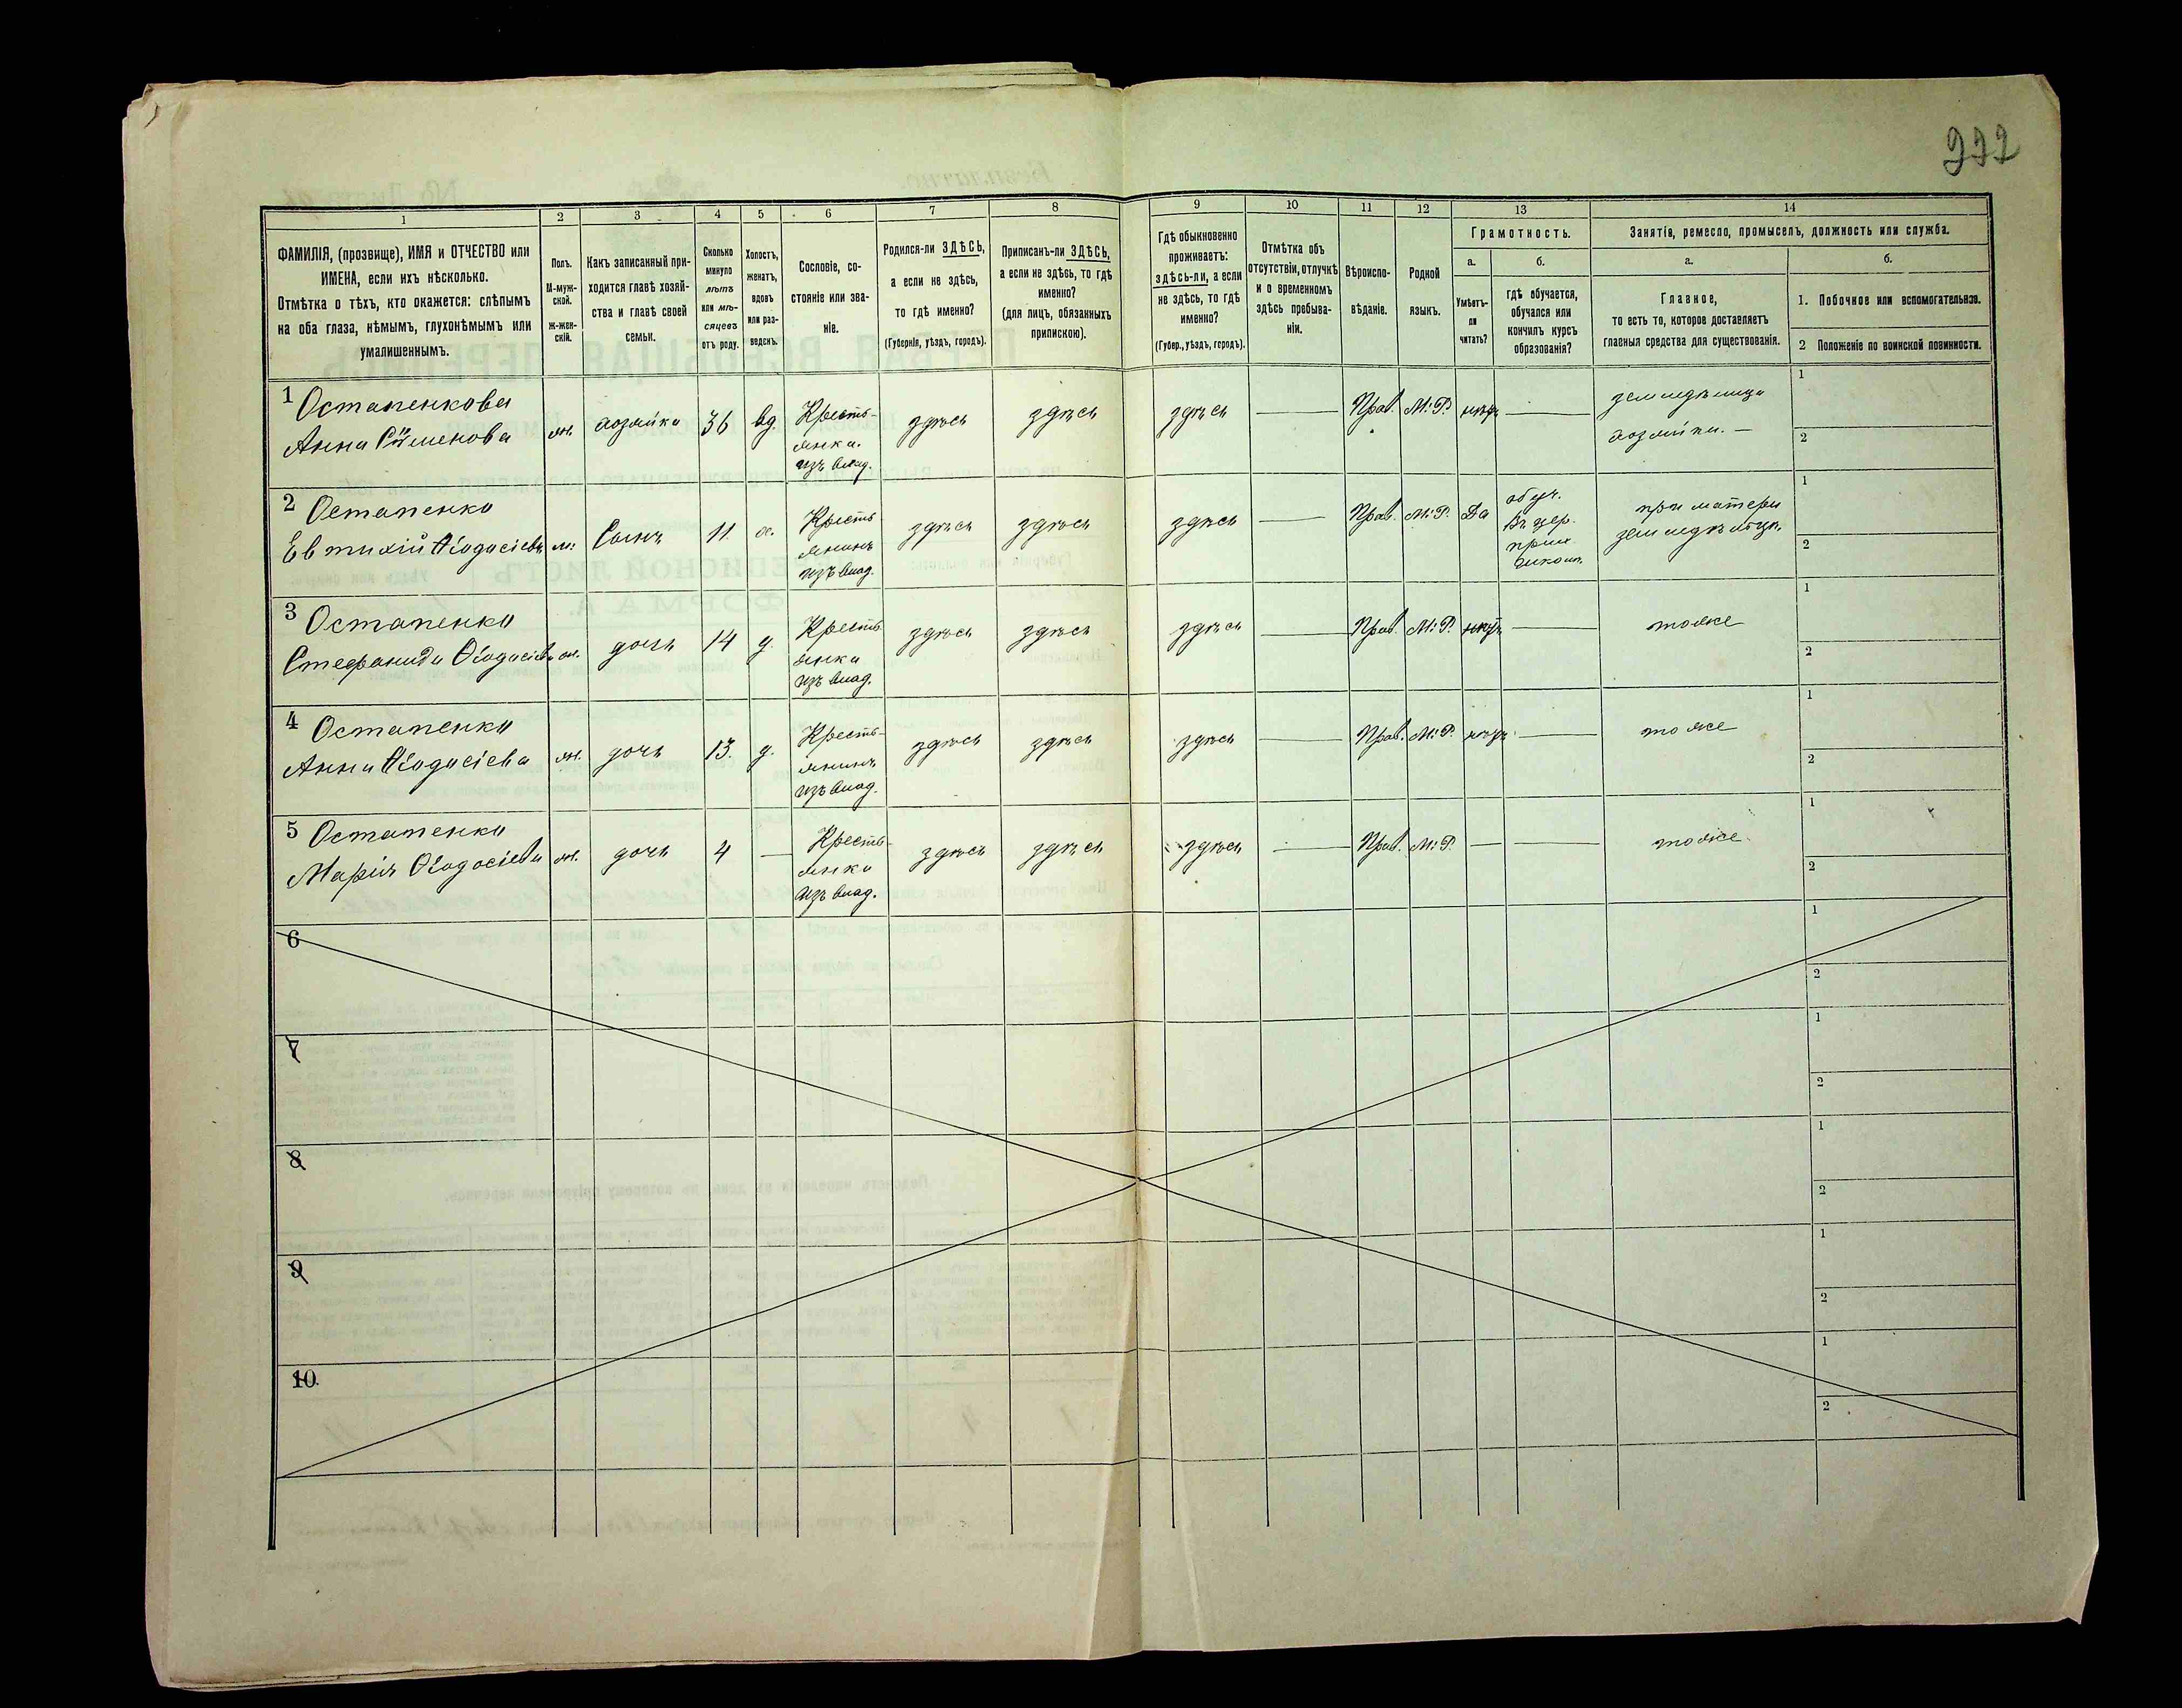 222
1
2
3
4
5
6
7
8
9
10
11
12
13
14
ФАМИЛІЯ, (прозвище), ИМЯ и ОТЧЕСТВО или
ИМЕНА, если ихъ нѣсколько.
Отмѣтка о тѣхъ, кто окажется: слѣпымъ
на оба глаза, нѣмымъ, глухонѣмымъ или
умалишеннымъ.
Полъ.
М-муж-
ской.
ж-жен-
скій.
Какъ записанный при-
ходится главѣ хозяй-
ства и главѣ своей
семьи.
Сколько
минуло
лѣтъ
или мѣ-
сяцевъ
отъ роду.
Холостъ,
женатъ,
вдовъ
или раз-
веденъ.
Сословіе, со-
стояніе или зва-
ніе.
Родился-ли ЗДѢСЬ,
а если не здѣсь,
то гдѣ именно?
(Губернія, уѣздъ, городъ).
Приписанъ-ли ЗДѢСЬ,
а если не здѣсь, то гдѣ
именно?
(для лицъ, обязанныхъ
припискою).
Гдѣ обыкновенно
проживаетъ:
здѣсь-ли, а если
не здѣсь, то гдѣ
именно?
(Губер., уѣздъ, городъ).
Отмѣтка объ
отсутствіи, отлучкѣ
и о временномъ
здѣсь пребыва-
ніи.
Вѣроиспо-
вѣданіе.
Родной
языкъ.
Грамотность.
а.
Умѣетъ-
ли
читать?
б.
гдѣ обучается,
обучался или
кончилъ курсъ
образованія?
Занятія, ремесло, промыселъ, должность или служба.
а.
Главное,
то есть то, которое доставляетъ
главныя средства для существованія.
б.
1. Побочное или вспомогательное.
2 Положеніе по воинской повинности.
1 Остапенкова
Анна Сѵменова
ж. хозяйка 36 вд.
Кресть-
янка.
изъ влад.
здѣсь здѣсь здѣсь — Прав. М:Р. нѣтъ —
земледѣлица
хозяйка. —
1
2
2 Остапенко
Евтихій Ѳеодосіевъ
м: Сынъ 11. х.
Кресть
янинъ
изъ влад.
здѣсь здѣсь здѣсь — Прав. М:Р. Да
обуч.
въ цер.
прих
школ.
при матери
1
2
3 Остапенко
Стефанида Ѳеодосіева
ж. дочь 14 д.
Кресть
янка
изъ влад.
здѣсь здѣсь здѣсь — Прав. М:Р. нѣтъ — тоже
1
2
4 Остапенко
Анна Ѳеодосіева
ж. дочь 13. д.
Кресть-
янинъ
изъ влад.
здѣсь здѣсь здѣсь — Прав. М:Р. нѣтъ — тоже
1
2
5 Остапенко
Марія Ѳеодосіева
ж. дочь 4 —
Кресть-
янка
изъ влад.
здѣсь здѣсь здѣсь — Прав. М:Р. — — тоже
1
2
6
1
2
7
1
2
8
1
2
9
1
2
10.
1
2